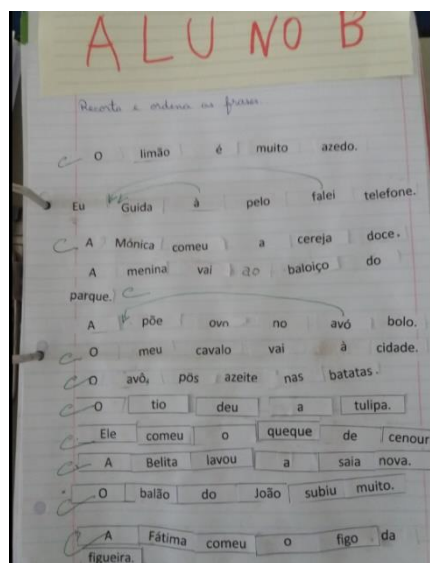 ALUNO B
Recorta e ordena as frases.
O limão é muito azedo.
Eu Guida à pelo falei telefone.
A Mónica comeu a cereja doce.
A menina vai ao baloiço do
parque.
A põe ovo no avó bolo.
O meu cavalo vai à cidade.
O avô, pôs azeite nas batatas.
O tio deu a tulipa.
Ele comeu o queque de cenour
A Belita lavou a saia nova.
O balão do João subiu muito.
A Fátima comeu o figo da
figueira.